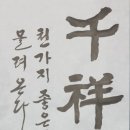 千祥
천가지 좋은
몰려 온다